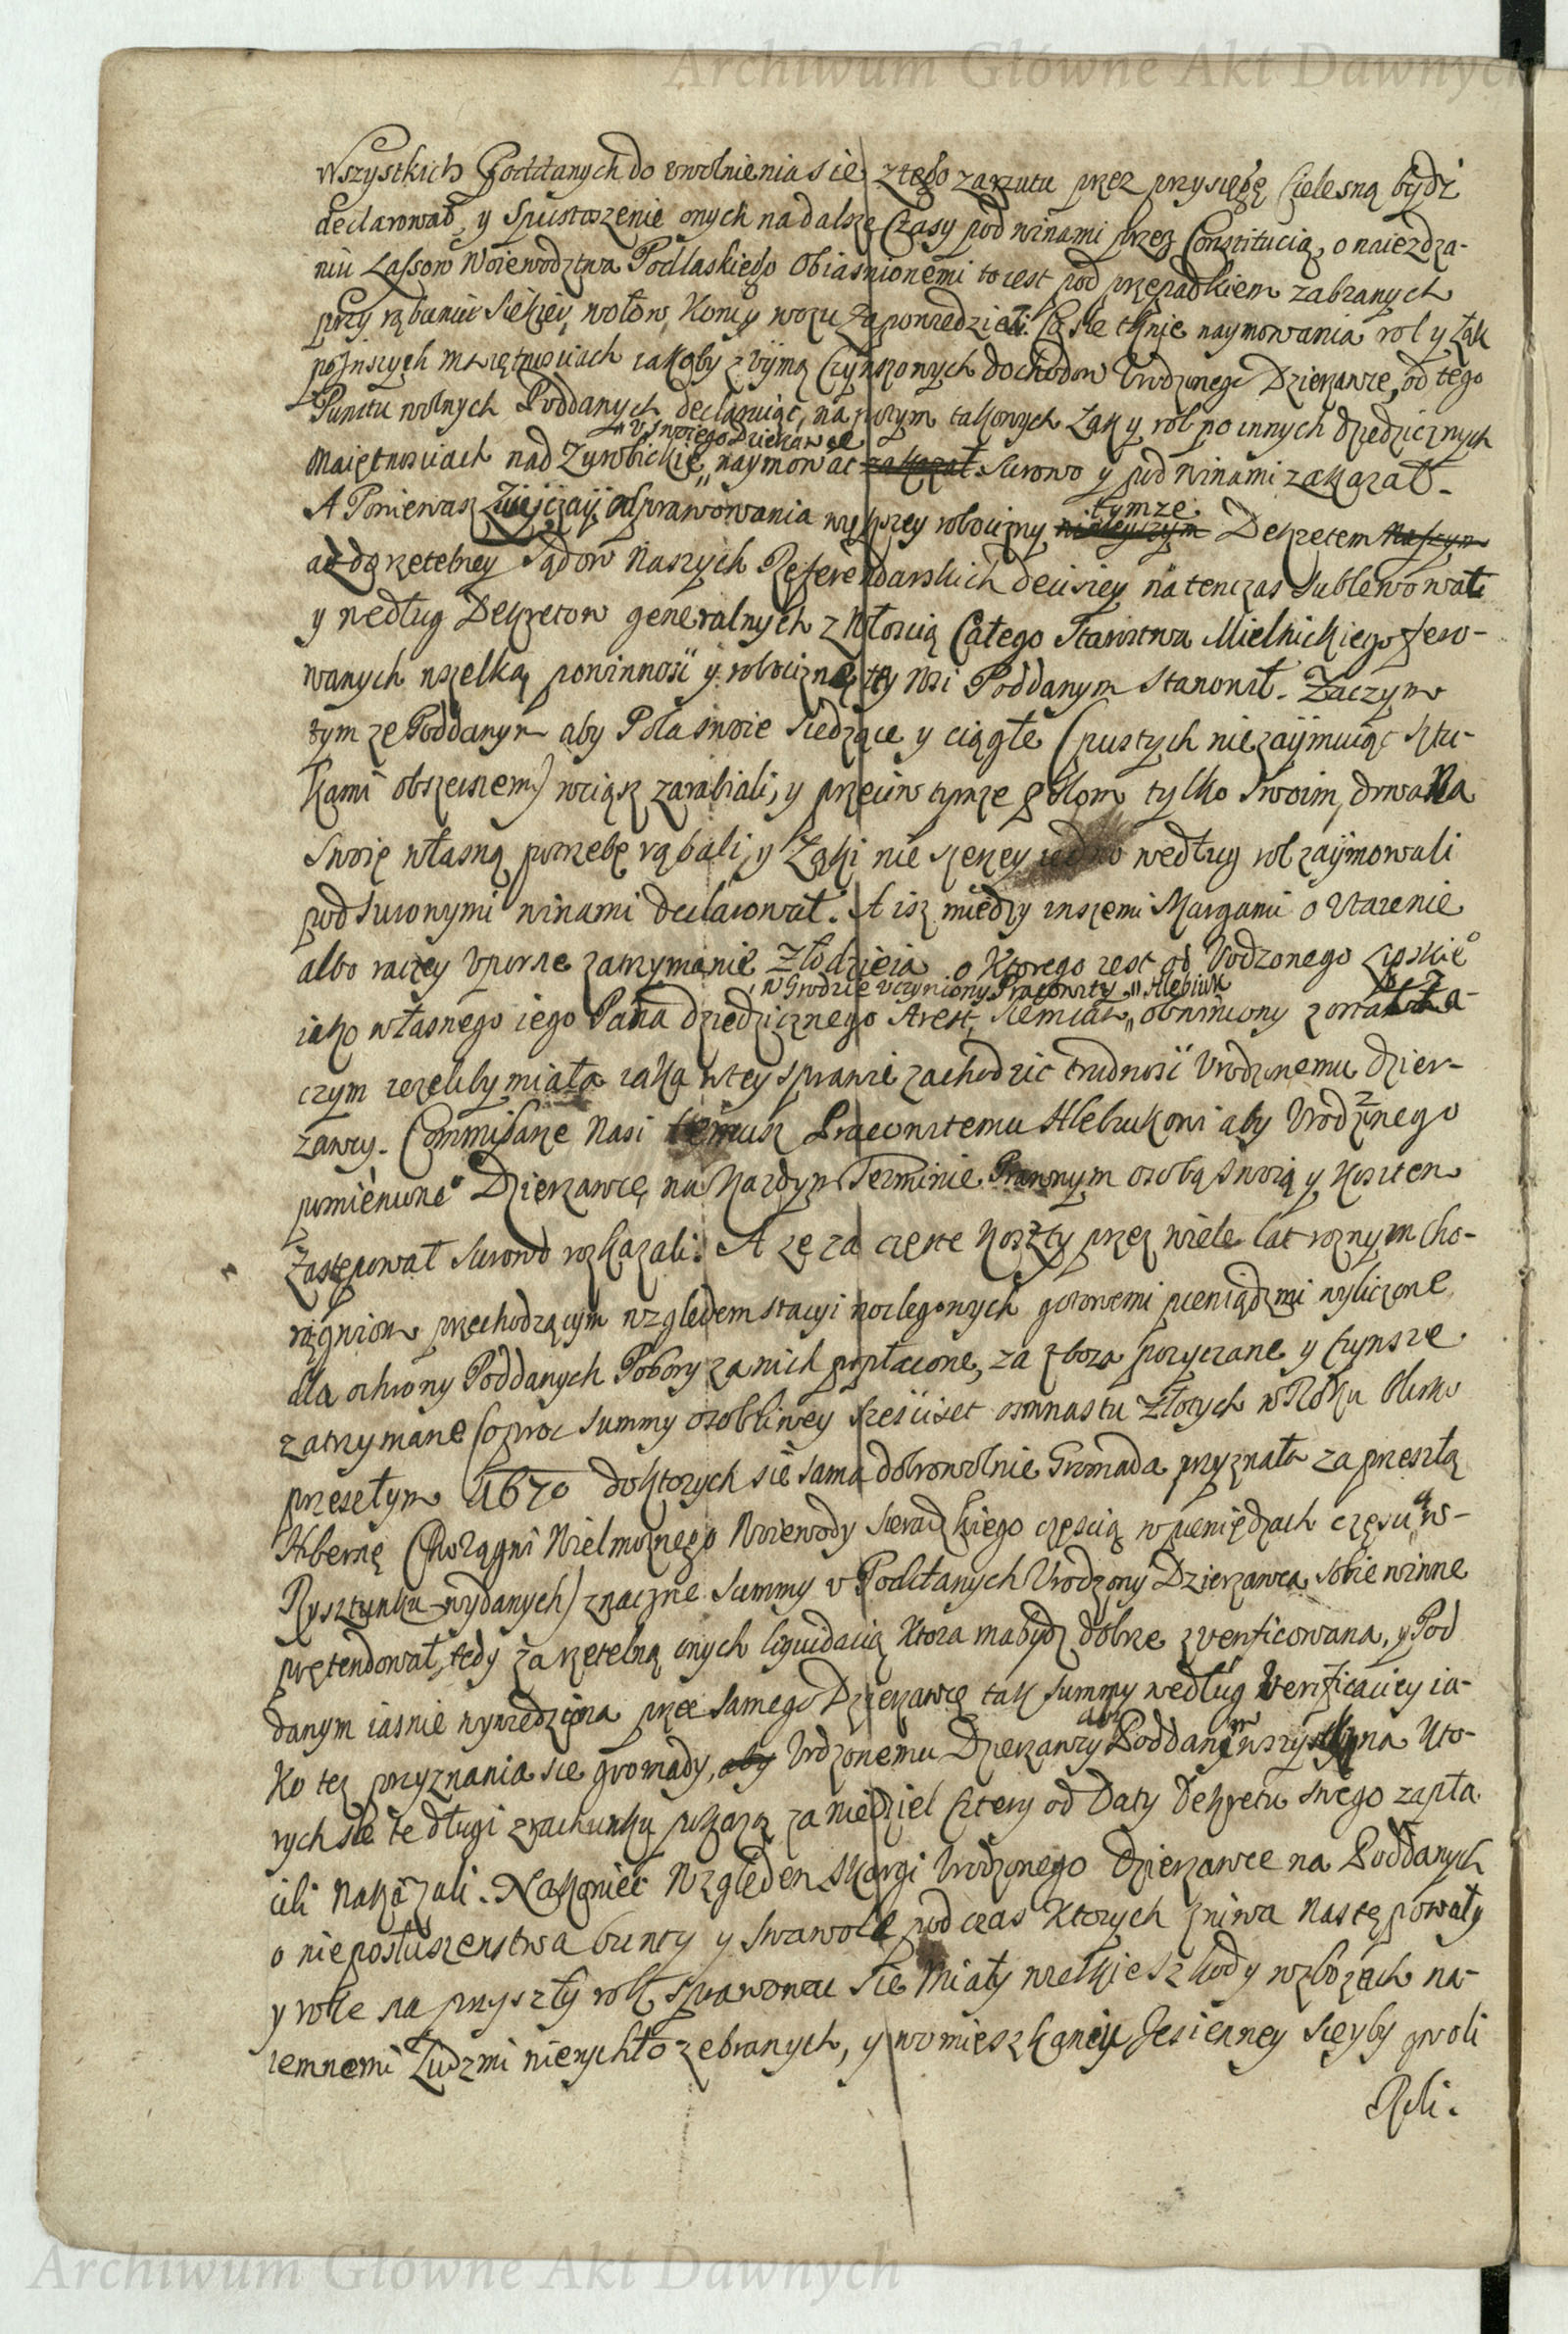 Archiwum Główne Akt Dawnych
Wszystkich Poddanych do vwolnienia sie z tego zarzutu przez przysięgę Cielesną bydź
declarował, y spustoszenie onych na dalsze Czasy pod winami przez Constitucią, o naiezdza-
niu Lassow Woiewodztwa Podlaskiego Obiasnionemi to iest pod przepadkiem zabranych
przy rąbaniu Siekiey, wołow, Koni y wozu Zapowiedzieli. Co sie tknie naymowania rol y Łąk
po Jnszych maiętnosciach iakoby z vymą Czynszowych dochodow Urodzonego Dzierzawce, od tego
Punctu wolnych Poddanych declaruiąc, na potym takowych Łąk y rol po innych dziedzicznych
Maiętnosciach nad Zyrobickie „ v Swoiego Dzierzawce naymowac zakazał Surowo y pod winami zakazał.
A Poniewasz odprawowania wyższey robocizny ninieyszym tymze Dekretem Naszym
az do rzetelney Sądow Naszych Referendarskich decisiey na tenczas Sublewował
y według Dekretow generalnych z Włoscią Całego Starostwa Mielnickiego fero-
wanych wszelką powinnosć y robociznę tey Wsi Poddanym Stanowił. Zaczym
tym ze Poddanym aby Pola swoie siedzące y ciągłe (pustych nie zaymuiąc sztu-
kami obszernem) wciąsz zarabiali, y przeciw tymze polom tylko Swoim, drwa Na
Swoię własną potrzebę rąbali, y Łąki nie szerzey iedno według rol zaymowali
pod Surowymi winami declarował. A isz między inszemi Skargami o Utazenie
albo raczey Vporne zatrzymanie Złodzieia o Ktorego iest od Urodzonego
iako własnego iego Pana dziedzicznego Arest „ w Grodzie vczyniony Pracowity Siemian „ Hlebiuk obwiniony został Za-
czym iezeliby miała iaka w tey sprawie zachodzic trudnosć Vrodzonemu dzier-
zawcy. Commissarze Nasi temusz Pracowitemu Hlebiukowi aby Vrodzonego
pomienione° Dzierzawcę, na Kazdym Terminie Prawnym osobą Swoią y Kosztem
Zastępował Surowo rozkazali. A ze za częste Koszty przez wiele lat roznym Cho-
rągwiom przechodzącym względem stacyi noclegowych gotowemi pieniądzmi wyliczone
dla ochrony Poddanych Pobory za nich popłacone, za zboza pozyczane y Czynsze
zatrzymane (oprocz Summy osobliwey Szesciset osmnastu złotych w Roku blisko
przeszłym 1670 do Ktorych sie sama dobrowolnie Gromada przyznała za przeszłą
Hibernę Chorągwi Wielmoznego Woiewody Sieradzkiego częscią w pieniędzach częscią w-
Rysztunku wydanych) znaczne Summy v Poddanych Urodzony Dzierzawca Sobie winne
pretendował, tedy za rzetelną onych liquidacią Ktora ma bydz dobrze zverificowana, y Pod
danym iasnie wywiedziona przez samego Dzierzawcę tak Summy według Verificaciey ia-
ko tez przyznania sie gromady, aby Urodzonemu Dzierzawcy aby Poddani wszyscy na Kto-
rych sie te długi z rachunku pokazą za Niedziel Cztery od Daty Dekretu swego zapła-
cili Nakazali. Nakoniec Względem Skargi Urodzonego Dzierzawce na Poddanych
o nieposłuszenstwa bunty y Swawole pod czas Ktorych zniwa Następowały
y role na przyszły rok sprawowac sie miały wielkie szkody w zbozach na-
iemnemi Ludzmi nierychło zebranych, y w omieszkaniu Jesienney Sieyby gwoli
Roli.
Archiwum Główne Akt Dawnych